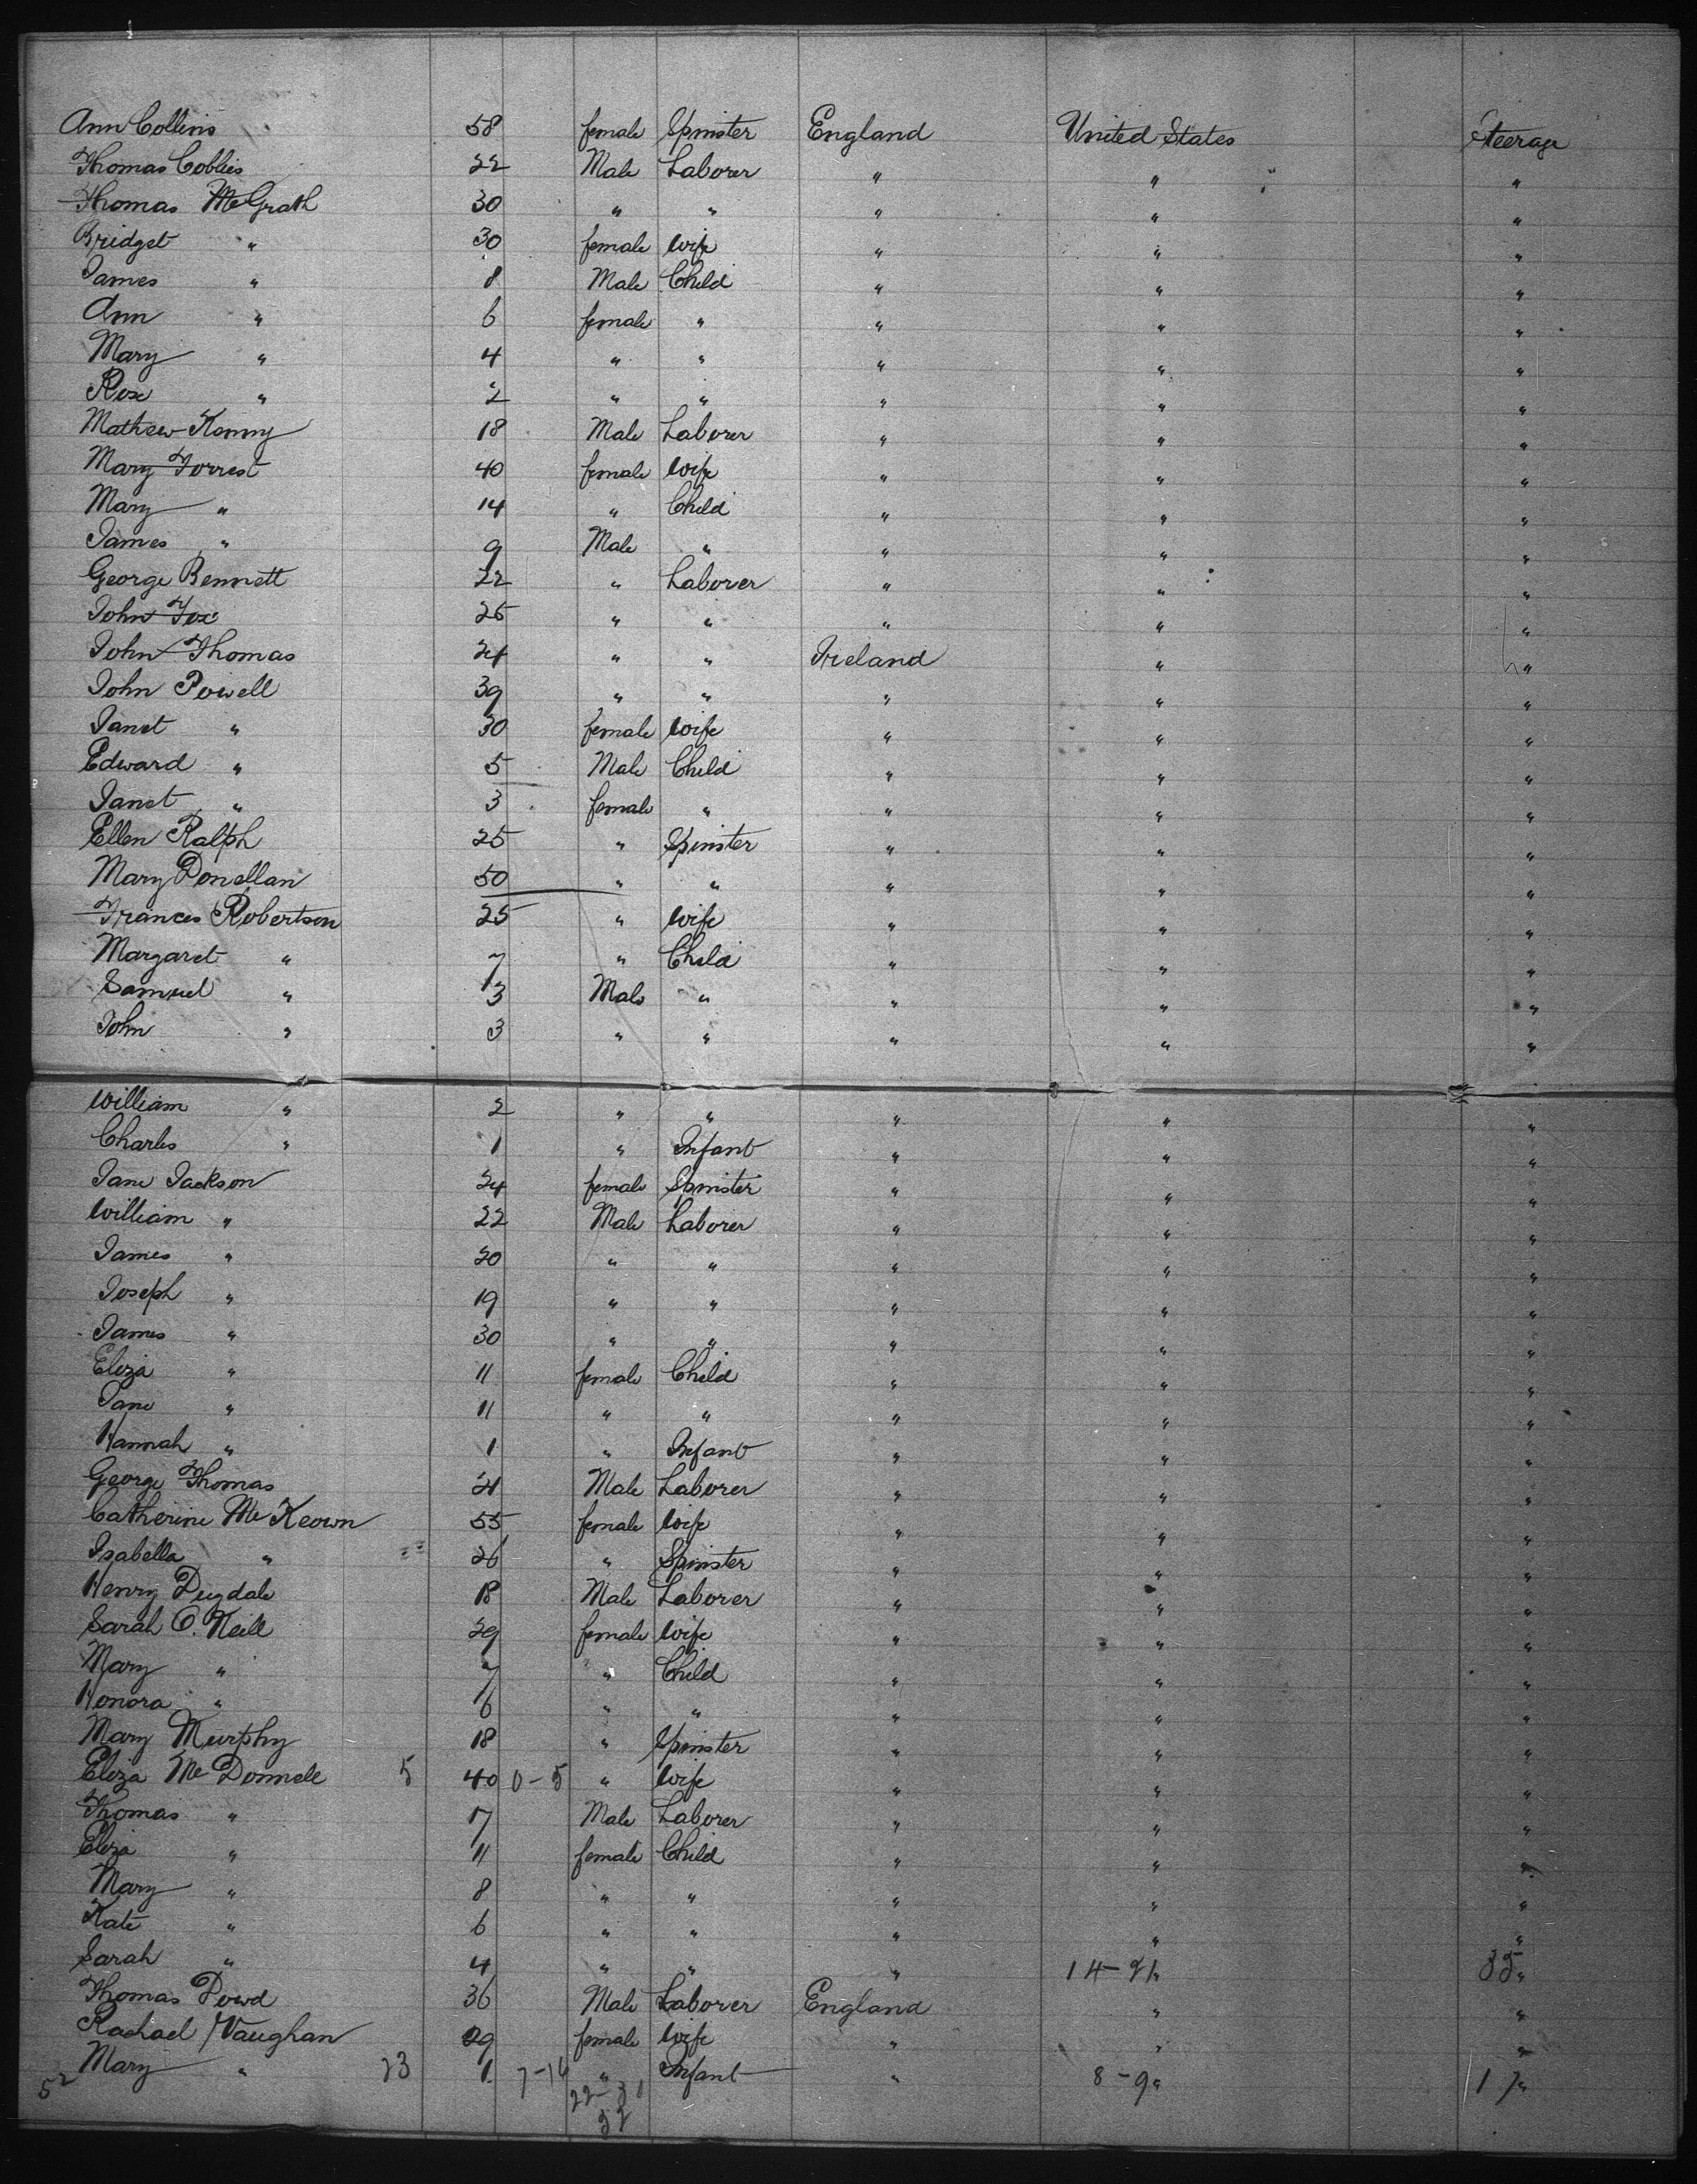 Ann Collins 58 female Spinster England United States Steerage
Thomas Collies 22 Male Laborer " " "
Thomas McGrath 30 " " " " "
Bridget " 30 female wife " " "
James " 8 Male Child " " "
Ann " 6 female " " " "
Mary " 4 " " " " "
Rose " 2 " " " " "
Mathew Kenny 18 Male Laborer " " "
Mary Forrest 40 female wife " " "
Mary " 14 " Child " " "
James " 9 Male " " " "
George Bennett 22 " Laborer " " "
John Fox 25 " " " " "
John Thomas 24 " " Ireland " "
John Powell 39 " " " " "
Janet " 30 female wife " " "
Edward " 5 Male Child " " "
Janet " 3 female " " " "
Ellen Ralph 25 " Spinster " " "
Mary Donellan 50 " " " " "
Frances Robertson 25 " wife " " "
Margaret " 7 " Child " " "
Samuel " 3 Male " " " "
John " 3 " " " " "
William " 2 " " " " "
Charles " 1 " Infant " " "
Jane Jackson 24 female Spinster " " "
William " 22 Male Laborer " " "
James " 20 " " " " "
Joseph " 19 " " " " "
James " 30 " " " " "
Eliza " 11 female Child " " "
Jane " 11 " " " " "
Hannah " 1 " Infant " " "
George Thomas 21 Male Laborer " " "
Catherine McKeown 55 female wife " " "
Isabella " 26 " Spinster " " "
Henry Dugdale 18 Male Laborer " " "
Sarah O. Neill 29 female wife " " "
Mary " 7 " Child " " "
Honora " 6 " " " " "
Mary Murphy 18 " Spinster " " "
Eliza McDonnell 5 40 0-5 " wife " " "
Thomas " 17 Male Laborer " " "
Eliza " 11 female Child " " "
Mary " 8 " " " " "
Kate " 6 " " " " "
Sarah " 4 " " " 14-21 " 35 "
Thomas Dowd 36 Male Laborer England " "
Rachael Vaughan 29 female wife " " "
52 Mary " 23 1 7-16 " Infant " 8-9 " 17 "
22-31
52